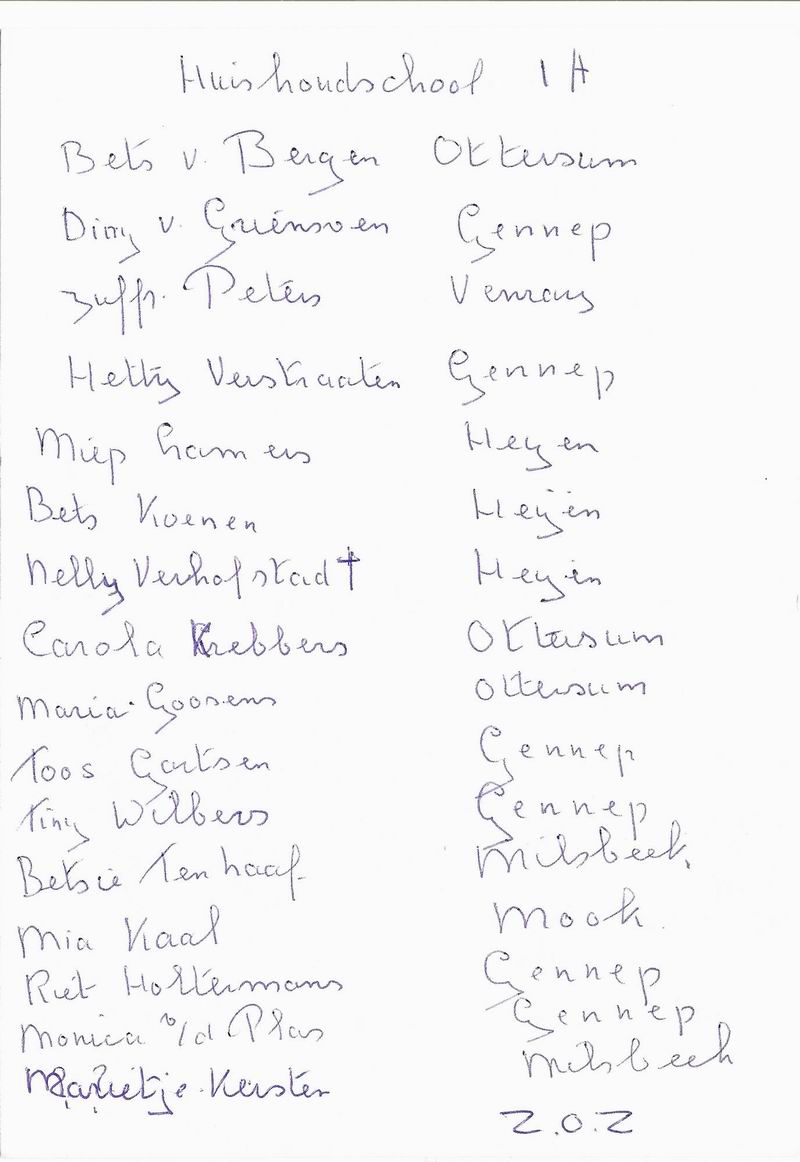 Huishoudschool 1 A
Bets v. Bergen Ottersum
Diny v. Griensven Gennep
Juffr. Peters Venray
Hetty Verstraaten Gennep
Miep Hamers Heyen
Bets Koenen Heijen
Nelly Verhofstad † Heyen
Carola Krebbers Ottersum
Maria Goosens Ottersum
Toos Gertsen Gennep
Tiny Wilbers Gennep
Betsie Ten haaf Milsbeek.
Mia Kaal Mook.
Riet Holtermans Gennep
Monica v/d Plas Gennep
Marietje Kersten Milsbeek
Z.O.Z